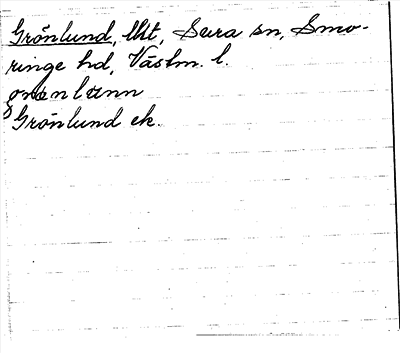 Grönlund, llt, Sura sn, Snev-
ringe hd, Västm. l.
Grönlund ek.